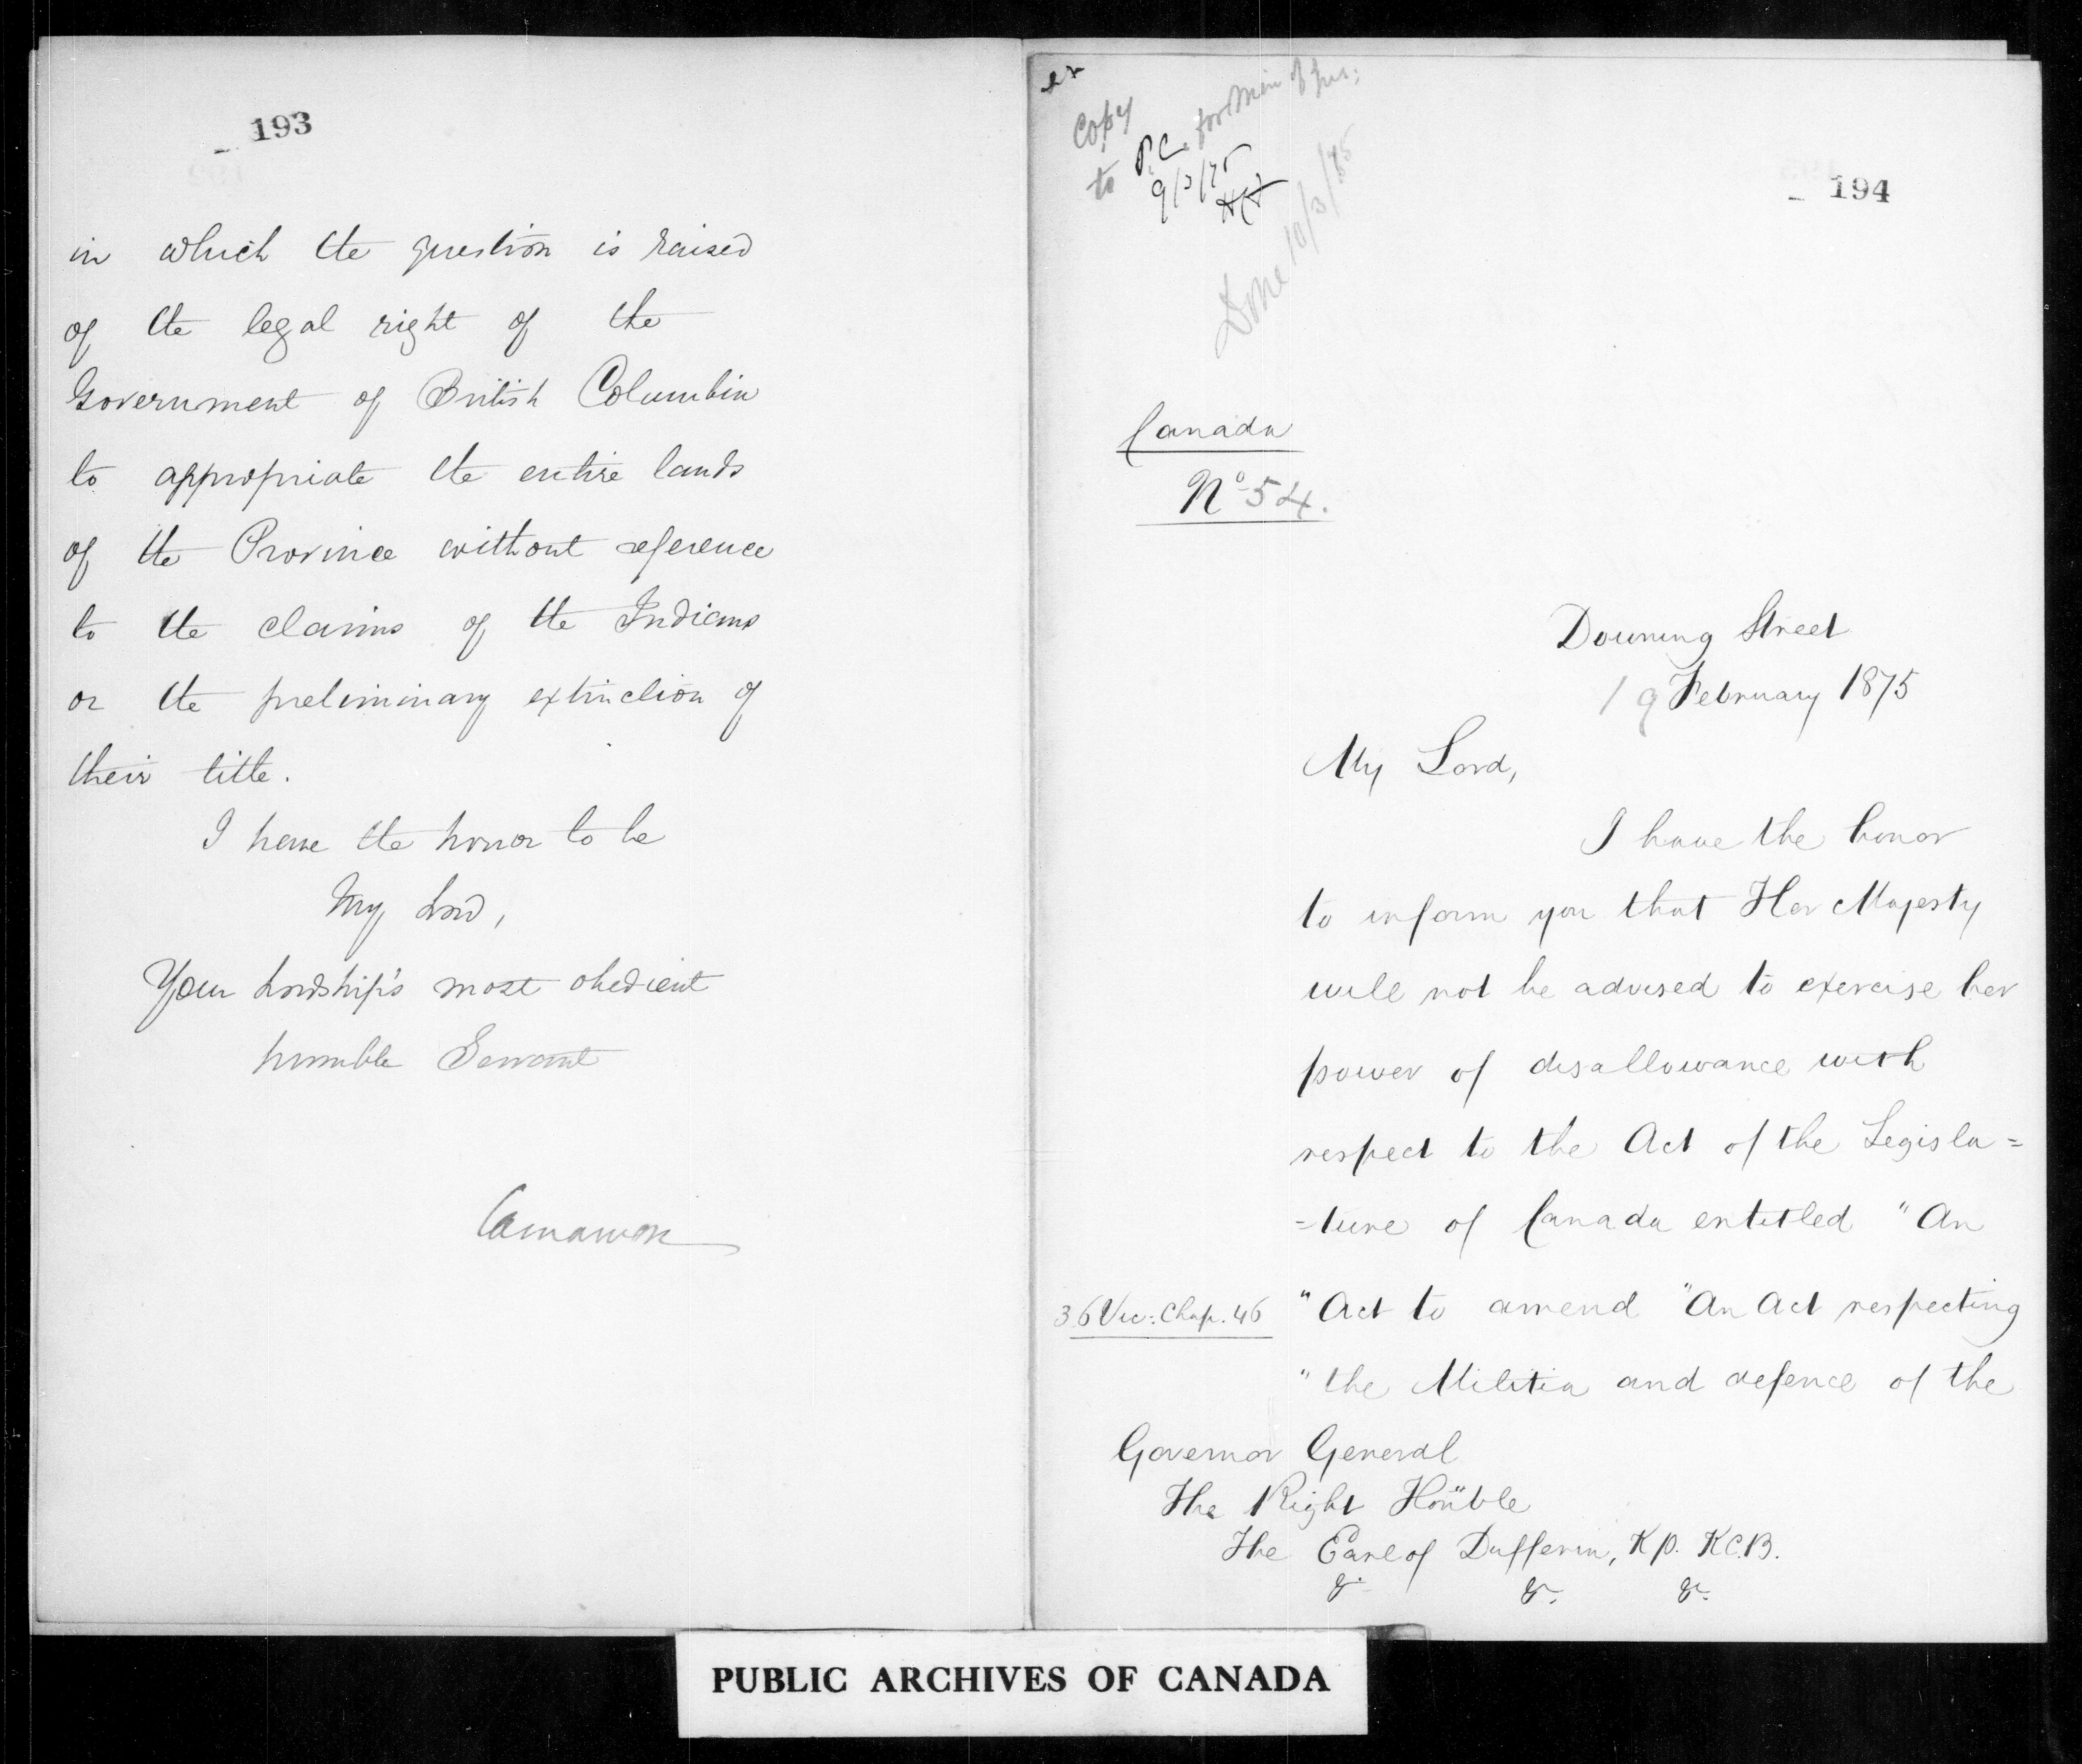 193
in which the question is raised
of the legal right of the
Government of British Columbia
to appropriate the entire lands
of the Province without reference
to the claims of the Indians
or the preliminary extinction of
their title.
I have the honor to be
My Lord,
Your Lordship's most obedient
humble Servant
Carnarvon
Copy
to P.C. for Min of Jus:
9/3/75
Done 10/3/75
194
Canada
No 54.
Downing Street
19 February 1875
My Lord,
I have the honor
to inform you that Her Majesty
will not be advised to exercise her
power of disallowance with
respect to the Act of the Legisla=
=ture of Canada entitled "An
36 Vic: Chap. 46 "Act to amend "An Act respecting
"the Militia and defence of the
Governor General
The Right Honble
The Earl of Dufferin, K.P. K.C.B.
&. &. &.
PUBLIC ARCHIVES OF CANADA